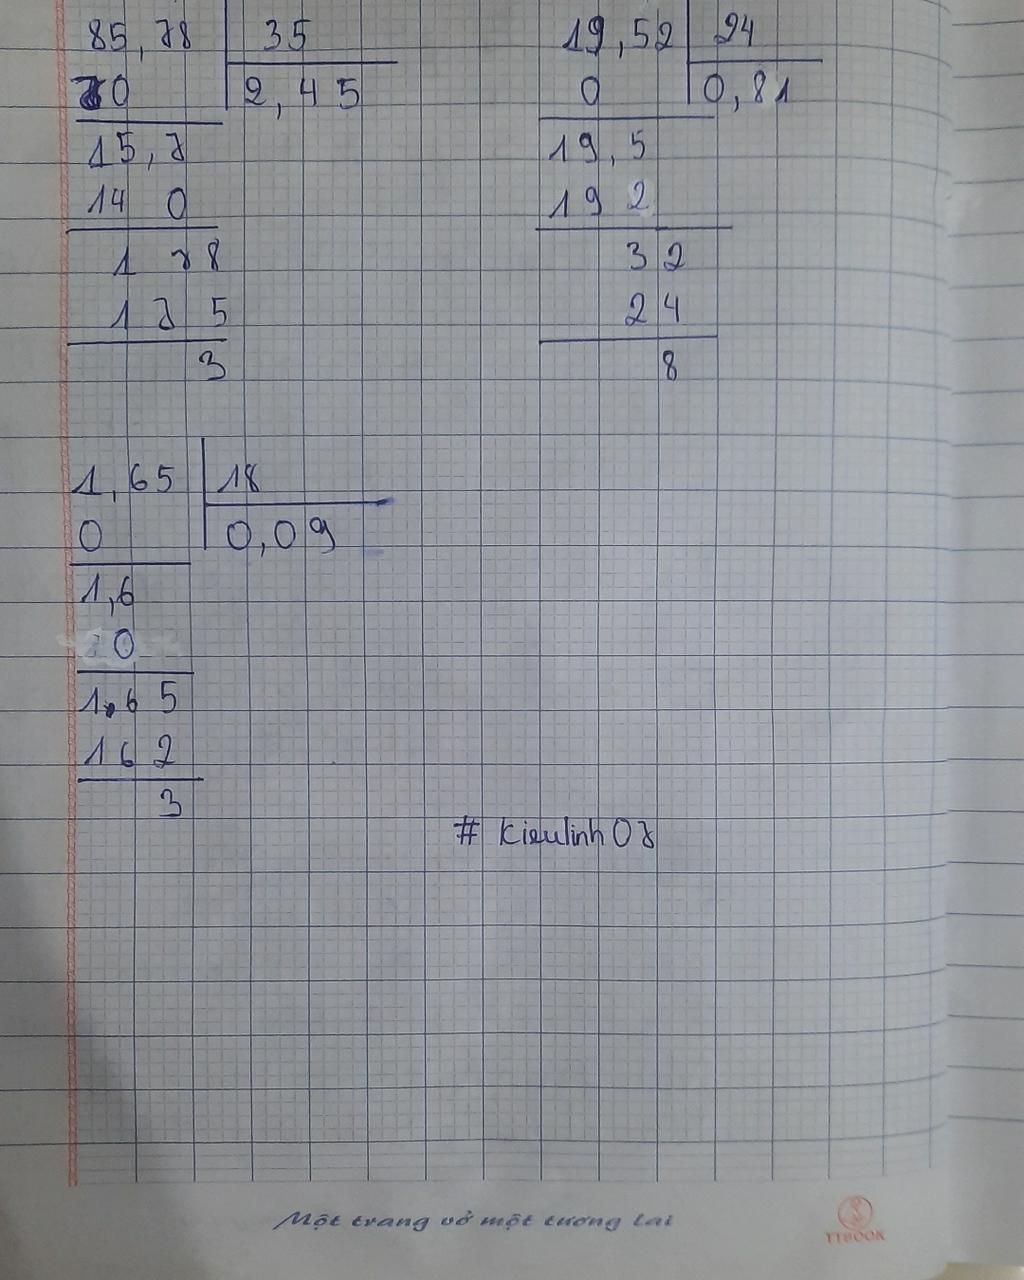 85,78 35
70 2,45
15,7
14 0
1 78
1 7 5
3
19,52 24
0 0,81
19,5
19 2
3 2
2 4
8
1,65 18
0 0,09
1,6
0
1,6 5
16 2
3
# Kieulinh 07
Một trang vở một tương lai
TTBOOK